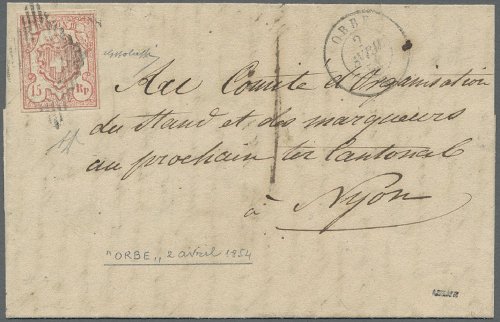 15 Rp
ORBE
2
Au Comité d'Organisation
du Stand et des marqueurs
au prochain tir Cantonal
à Nyon
"ORBE,, 2 avril 1854